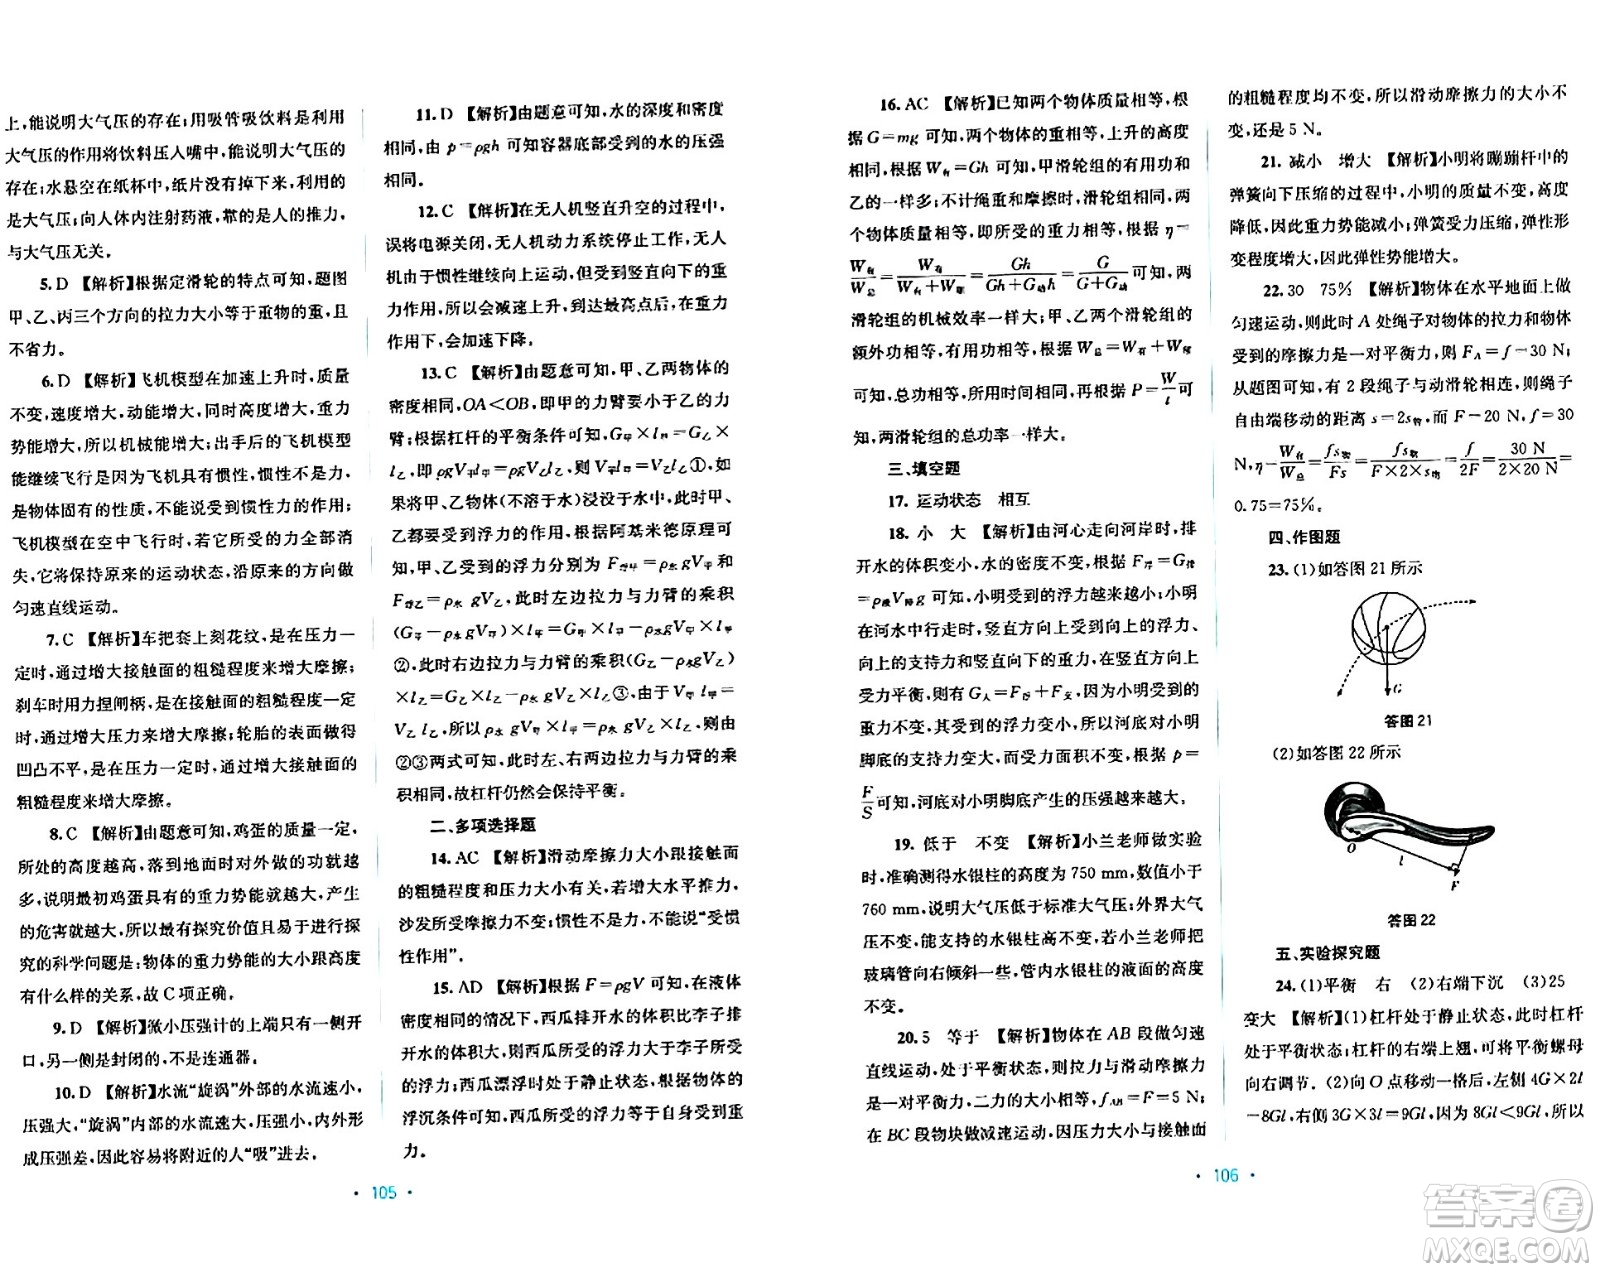 上,能说明大气压的存在;用吸管吸饮料是利用
大气压的作用将饮料压人嘴中,能说明大气压的
存在;水悬空在纸杯中,纸片没有掉下来,利用的
是大气压;向人体内注射药液,靠的是人的推力,
与大气压无关。
5. D 【解析】根据定滑轮的特点可知,题图
甲、乙、丙三个方向的拉力大小等于重物的重,且
不省力。
6. D 【解析】飞机模型在加速上升时,质量
不变,速度增大,动能增大,同时高度增大,重力
势能增大,所以机械能增大;出手后的飞机模型
能继续飞行是因为飞机具有惯性,惯性不是力,
是物体固有的性质,不能说受到惯性力的作用;
飞机模型在空中飞行时,若它所受的力全部消
失,它将保持原来的运动状态,沿原来的方向做
匀速直线运动。
7. C 【解析】车把套上刻花纹,是在压力一
定时,通过增大接触面的粗糙程度来增大摩擦;
刹车时用力捏闸柄,是在接触面的粗糙程度一定
时,通过增大压力来增大摩擦;轮胎的表面做得
凹凸不平,是在压力一定时,通过增大接触面的
粗糙程度来增大摩擦。
8. C 【解析】由题意可知,鸡蛋的质量一定,
所处的高度越高,落到地面时对外做的功就越
多,说明最初鸡蛋的重力势能就越大,产生
的危害就越大,所以最有探究价值且易于探究
的科学问题是:物体的重力势能的大小跟高度
有什么样的关系,故 C 项正确。
9. D 【解析】微小压强计的上端只有一侧开
口,另一侧是封闭的,不是连通器。
10. D 【解析】水流“旋涡”外部的水流速小,
压强大,“旋涡”内部的水流速大,压强小,内外形
成压强差,因此容易将附近的人“吸”进去。
· 105 ·
11. D 【解析】由题意可知,水的深度和密度
相同,由 p=ρgh 可知容器底部受到的水的压强
相同。
12. C 【解析】在无人机竖直升空的过程中,
误将电源关闭,无人机动力系统停止工作,无人
机由于惯性继续向上运动,但受到竖直向下的重
力作用,所以会减速上升,到达最高点后,在重力
作用下,会加速下降。
13. C 【解析】由题意可知,甲、乙两物体的
密度相同,OA<OB,即甲的力臂要小于乙的力
臂;根据杠杆的平衡条件可知,G甲×l甲=G乙×
l乙,即 ρgV甲l甲=ρgV乙l乙,则V甲l甲=V乙l乙①,如
果将甲、乙物体(不溶于水)浸没于水中,此时甲、
乙都要受到浮力的作用,由阿基米德原理可
知,甲、乙受到的浮力分别为 F浮甲=ρ水gV甲和
F浮乙=ρ水gV乙,此时左边拉力与力臂的乘积
(G甲-ρ水gV甲)×l甲=G甲×l甲-ρ水gV甲×l甲
②,此时右边拉力与力臂的乘积(G乙-ρ水gV乙)
×l乙=G乙×l乙-ρ水gV乙×l乙③,由于V甲l甲=
V乙l乙,所以ρ水gV甲×l甲=ρ水gV乙×l乙,由
②③两式可知,左、右两边拉力与力臂的乘
积相同,故杠杆仍然会保持平衡。
二、多项选择题
14. AC 【解析】滑动摩擦力大小跟接触面
的粗糙程度和压力大小有关,增大水平推力,
沙发所受摩擦力不变;惯性不是力,不能说“受惯
性作用”。
15. AD 【解析】根据 F=ρgV 可知,在液体
密度相同的情况下,西瓜排开水的体积比李子排
开水的体积大,则西瓜所受的浮力大于李子所受
的浮力;西瓜漂浮时处于静止状态,根据物体的
浮沉条件可知,西瓜所受的浮力等于自身受到重
力。
16. AC 【解析】已知两个物体质量相等,根
据 G=mg 可知,两个物体的重相等,上升的高度
相同,根据 W有=Gh 可知,甲滑轮组的有用功和
乙的一样多;不计绳重和摩擦时,滑轮组中两
个物体质量相等,即所受的重力相等,根据 η=
W有/W总=W有/(W有+W额)=Gh/(Gh+G动h)=G/(G+G动)可知,两
滑轮组的机械效率一样大;甲、乙两个滑轮组的
额外功相等,有用功相等,根据 W总=W有+W额
可知,总功相等,所用时间相同,再根据 P=W/t可
知,两滑轮组的总功率一样大。
三、填空题
17. 运动状态 相互
18. 小 大 【解析】由河心走向河岸时,排
开水的体积变小,水的密度不变,根据 F浮=G排
=ρ液V排g 可知,小明受到的浮力越来越小;小明
在河水中行走时,竖直方向上受到向上的浮力、
向上的支持力和竖直向下的重力,在竖直方向上
受力平衡,则有 G人=F浮+F支,因为小明受到的
重力不变,其受到的浮力变小,所以河底对小明
脚底的支持力变大,而受力面积不变,根据 p=
F/S可知,河底对小明脚底产生的压强越来越大。
19. 低于 不变 【解析】小兰老师做实验
时,准确测得水银柱的高度为 750 mm,数值小于
760 mm,说明大气压低于标准大气压;外界大气
压不变,能支持的水银柱高不变,若小兰老师把
玻璃管向右倾斜一些,管内水银柱的液面的高度
不变。
20. 5 等于 【解析】物体在 AB 段做匀速
直线运动,处于平衡状态,则拉力与滑动摩擦力
是一对平衡力,二力的大小相等,fAB=F=5 N;
在 BC 段物块做减速运动,因压力大小与接触面
· 106 ·
的粗糙程度均不变,所以滑动摩擦力的大小不
变,还是 5 N。
21. 减小 增大 【解析】小明将蹦蹦杆中的
弹簧向下压缩的过程中,小明的质量不变,高度
降低,因此重力势能减小;弹簧受力压缩,弹性形
变程度增大,因此弹性势能增大。
22. 30 75% 【解析】物体在水平地面上做
匀速运动,则此时 A 处绳子对物体的拉力和物体
受到的摩擦力是一对平衡力,则 FA=f=30 N;
从题图可知,有 2 段绳子与动滑轮相连,则绳子
自由端移动的距离 s=2s物,而 F=20 N,f=30
N,η=W有/W总=fs物/Fs=fs物/(F×2×s物)=f/2F=30 N/(2×20 N)=
0.75=75%。
四、作图题
23. (1)如答图 21 所示
G
答图 21
(2)如答图 22 所示
O
l
F
答图 22
五、实验探究题
24. (1)平衡 右 (2)右端下沉 (3)25
变大 【解析】(1)杠杆处于静止状态,则杠杆
处于平衡状态;杠杆的右端上翘,可将平衡螺母
向右调节。(2)向 O 点移动一格后,左侧 4G×2l
=8Gl,右侧 3G×3l=9Gl,因为 8Gl<9Gl,所以
答案圈
MXQE.COM